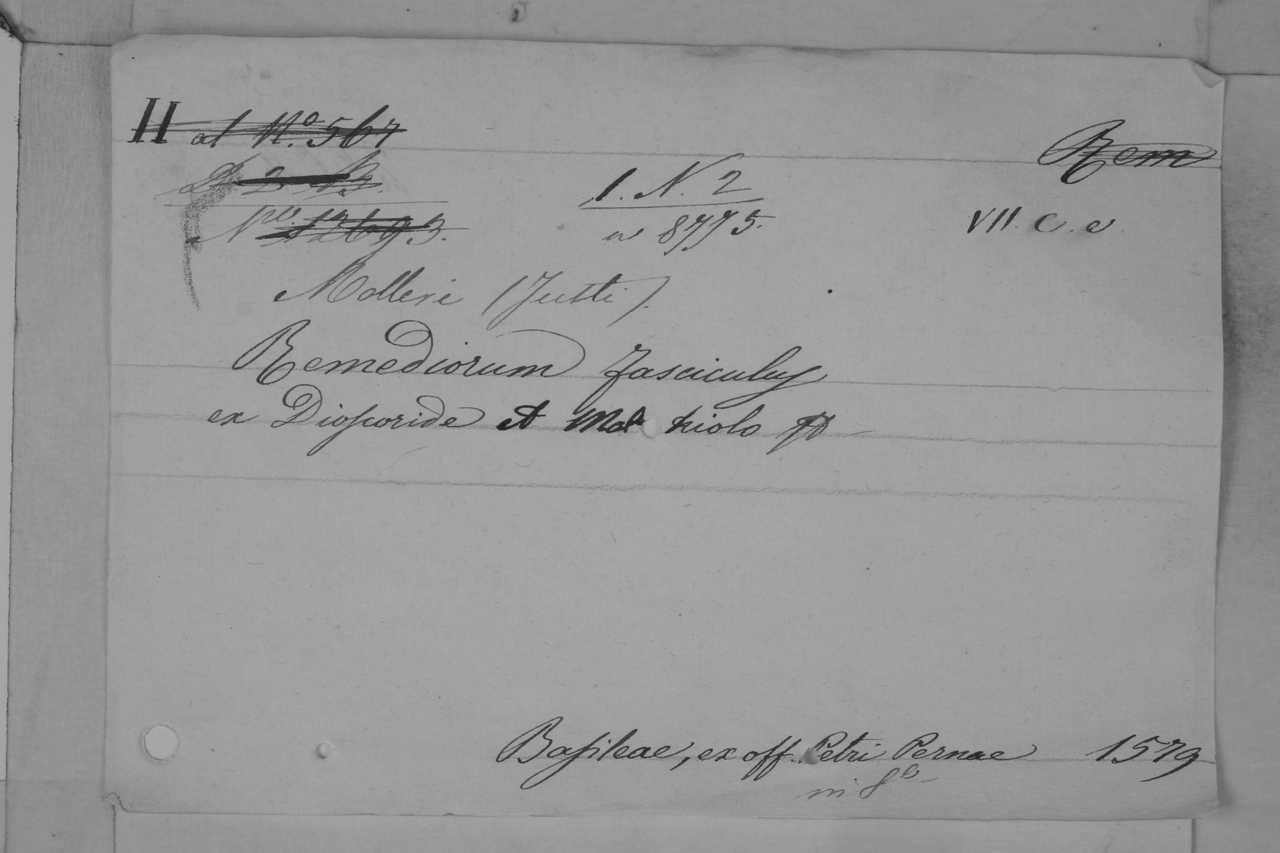 II al No. 567
Rem
1. N. 2
No. 12693.
8775.
VII. C. e.
Molleri (Justi).
Remediorum fasciculus
ex Dioscoride et Mat thiolo
Basileae, ex off. Petri Pernae 1579
in 8o